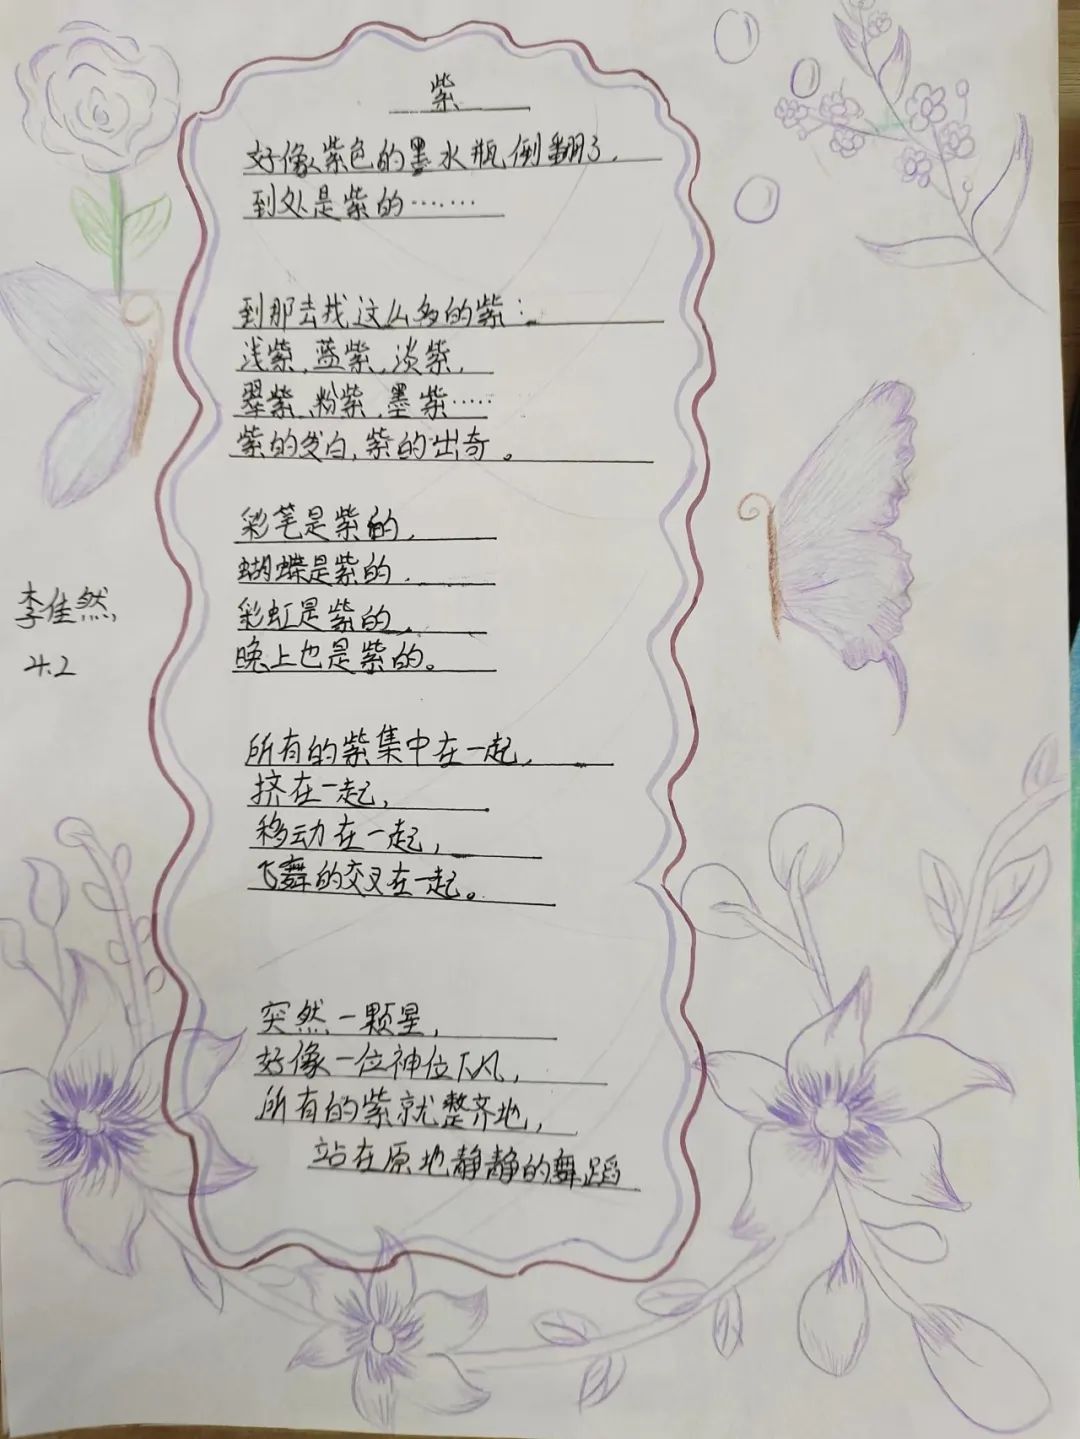 紫
好像紫色的墨水瓶倒翻了，
到处是紫的·······
到那去找这么多的紫：
浅紫、蓝紫、淡紫，
翠紫、粉紫、墨紫·····
紫的发白，紫的出奇。
彩笔是紫的，
蝴蝶是紫的，
彩虹是紫的，
晚上也是紫的。
所有的紫集中在一起，
挤在一起，
移动在一起，
飞舞的交叉在一起。
李佳然
4.2
突然一颗星，
好像一位神位下风，
所有的紫就整齐地，
站在原地静静的舞蹈